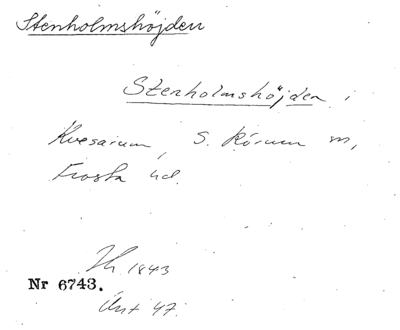 Stenholmshöjden
Stenholmshöjden i
Kvesarum, S. Rörum sn,
Frosta hd.
1843
Nr 6743.
47.